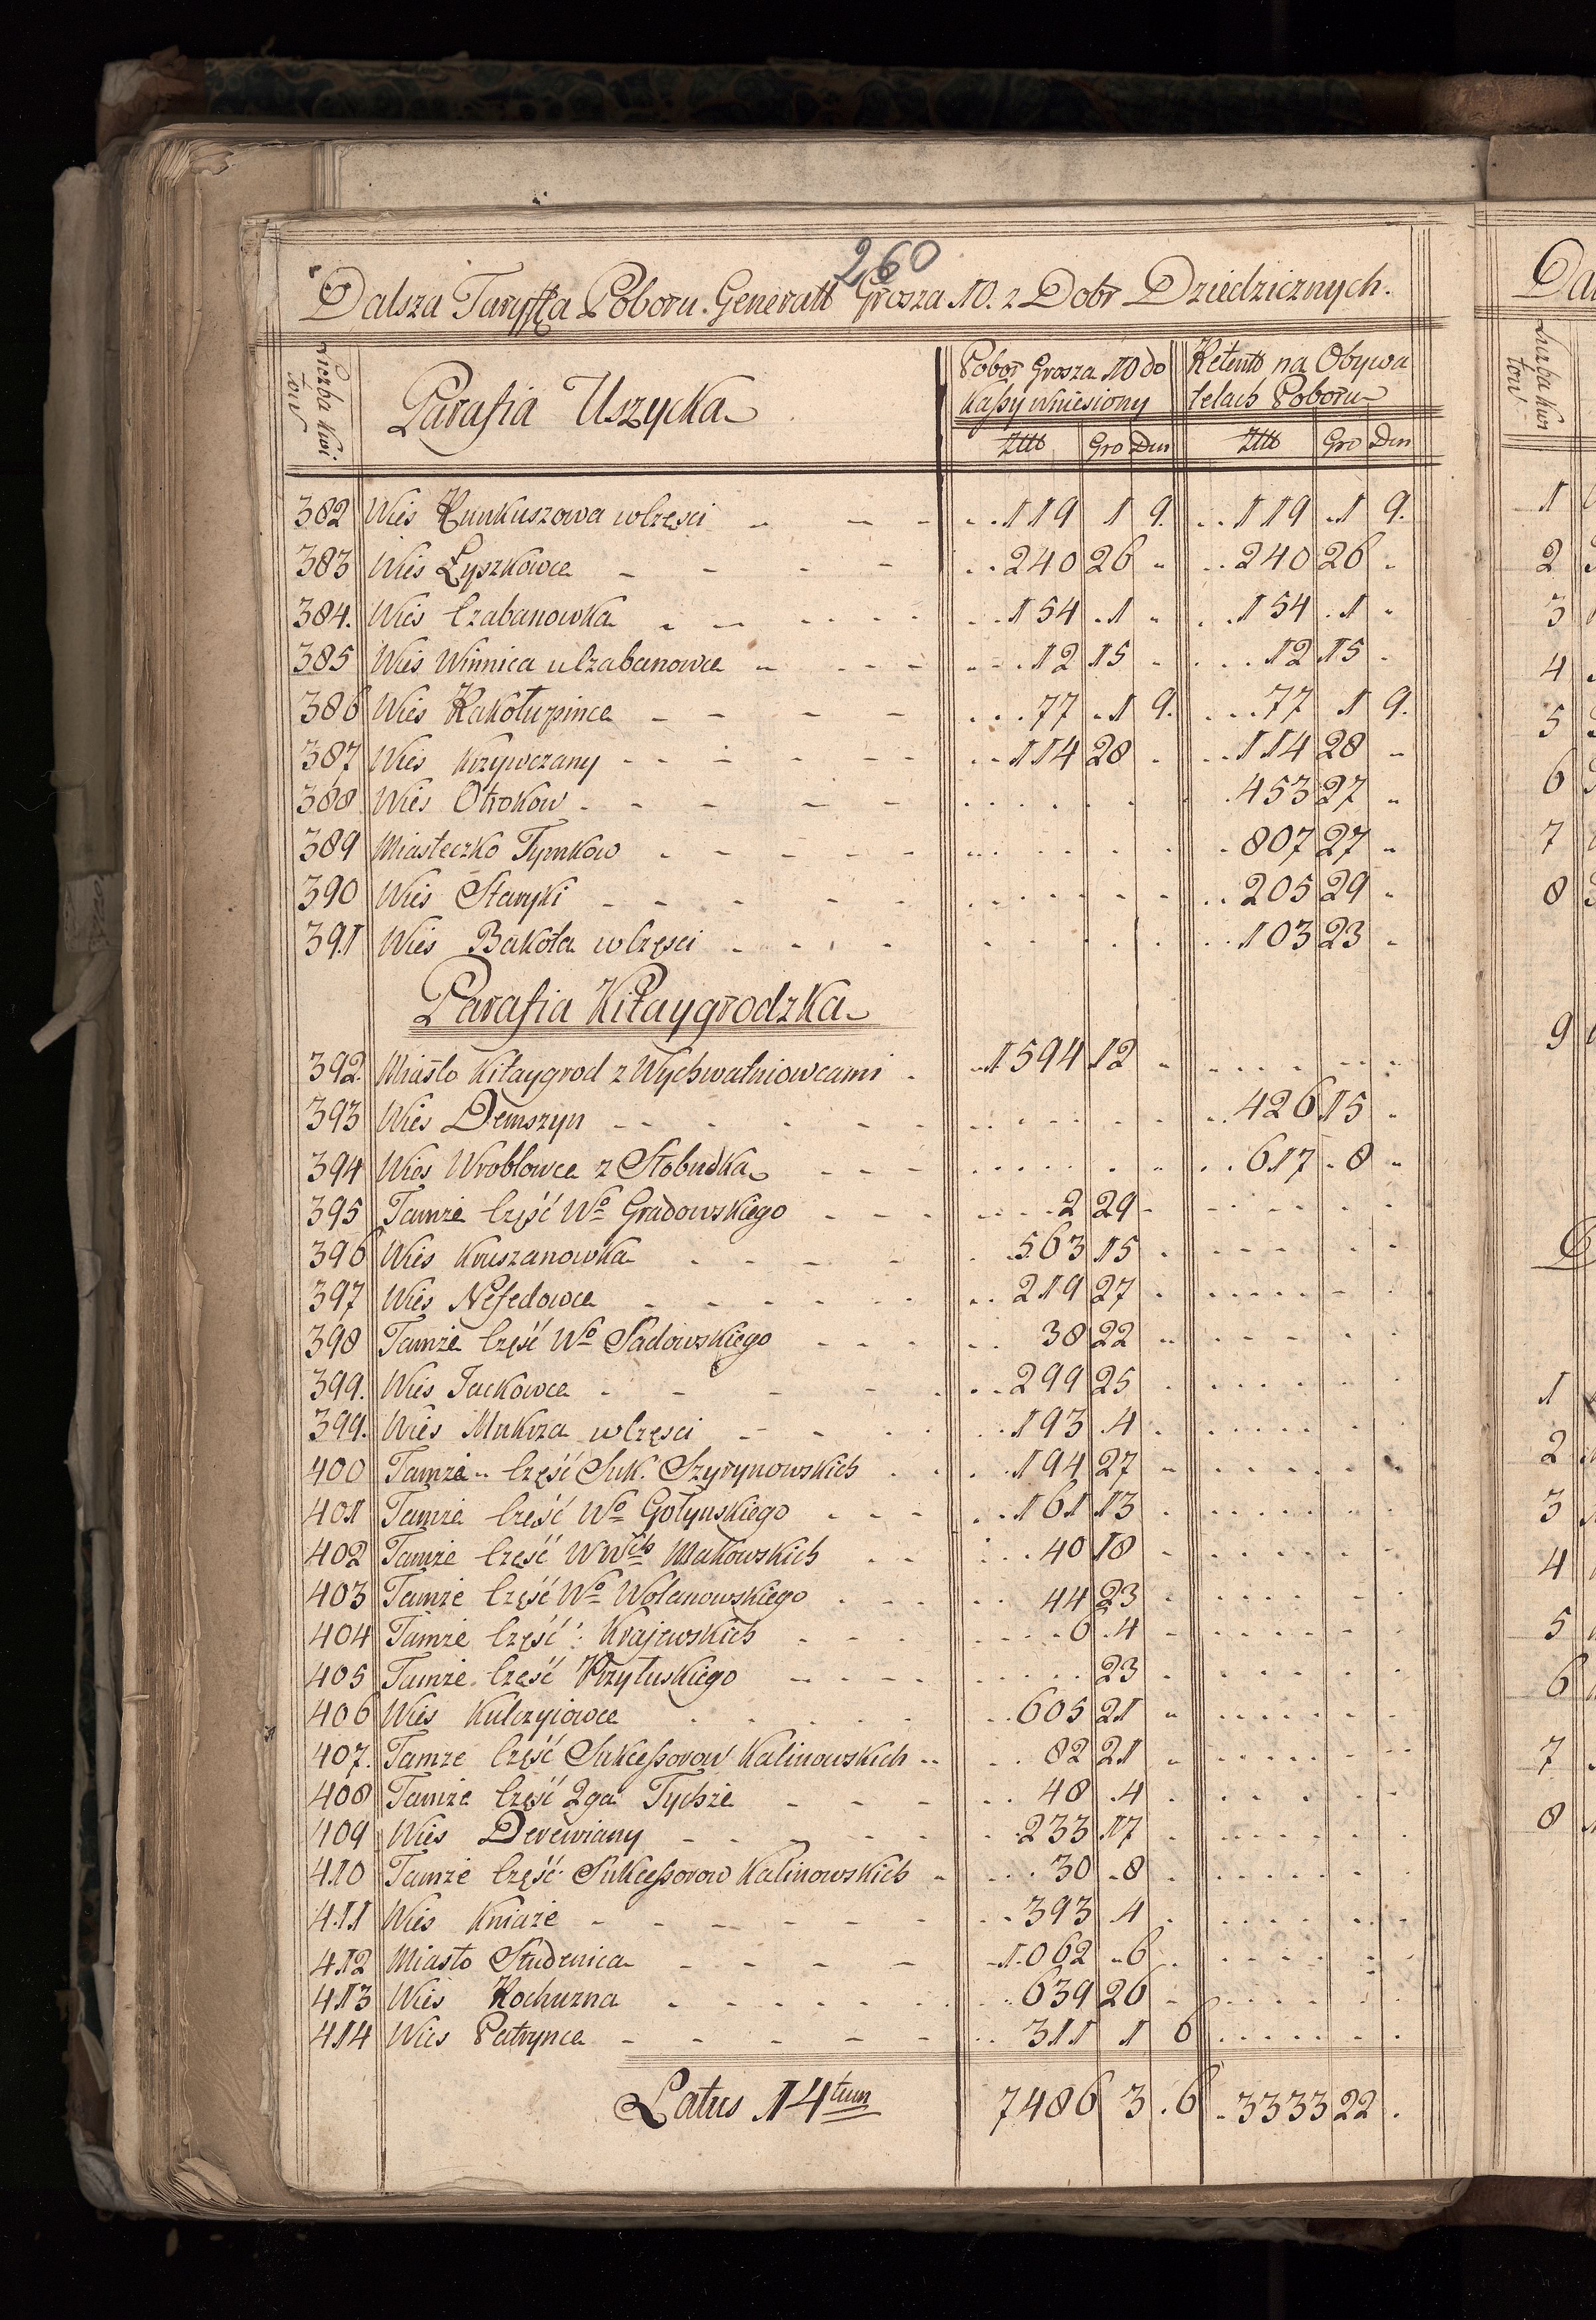 260
Dalsza Taryffa Poboru Generall Grosza 10. z Dobr Dziedzicznych.
Liczba kwi
tow
Parafia Uszycka
Pobor Grosza 10 do
Kassy wniesiony
Retent na Obywa
telach Poboru
Złł Gro Den Złł Gro Den
382 Wies Kunkuszowa w części 119 1 9. 119 1 9.
383 Wies Łyszkowce 240 26 240 26
384. Wies Czabanowka 154 1 154 1
385 Wies Winnica u Czabanowce 12 15 12 15
386 Wies Rakołupince 77 1 9. 77 1 9.
387 Wies Krzywczany 114 28 114 28
388 Wies Otrokow 453 27
389 Miasteczko Tymkow 807 27
390 Wies Staryki 205 29
391 Wies Bakota w części 103 23
Parafia Kitaygrodzka
392. Miasto Kitaygrod z Wychwatniowcami 1594 12
393 Wies Demszyn 426 15
394 Wies Wroblowce z Słobudka 617 8
395 Tamże Część Wo Gradowskiego 2 29
396 Wies Kruszanowka 563 15
397 Wies Nefedowce 219 27
398 Tamże Część Wo Sadowskiego 38 22
399. Wies Jackowce 299 25
399. Wies Mukrza w części 193 4
400 Tamże Część Suk. Szyrynowskich 194 27
401 Tamże Część Wo Gołyuskiego 161 13
402 Tamże Część WWch Makowskich 40 18
403 Tamże Część Wo Wolanowskiego 44 23
404 Tamże Część Krajewskich 6 4
405 Tamże Część Przyłuskiego 23
406 Wies Kulczyiowce 605 21
407. Tamze Część Sukcessorow Kalinowskich 82 21
408 Tamże Część 2ga Tychże 48 4
409 Wies Derewiany 233 17
410 Tamże Część Sukcessorow Kalinowskich 30 8
411 Wies Kniaże 393 4
412 Miasto Studenica 1062 6
413 Wies Rochuzna 639 26
414 Wies Patrynce 311 1 6
Latus 14tum 7486 3 6 3333 22
Liczba kwi
tow
1
2
3
4
5
6
7
8
9
1
2
3
4
5
6
7
8